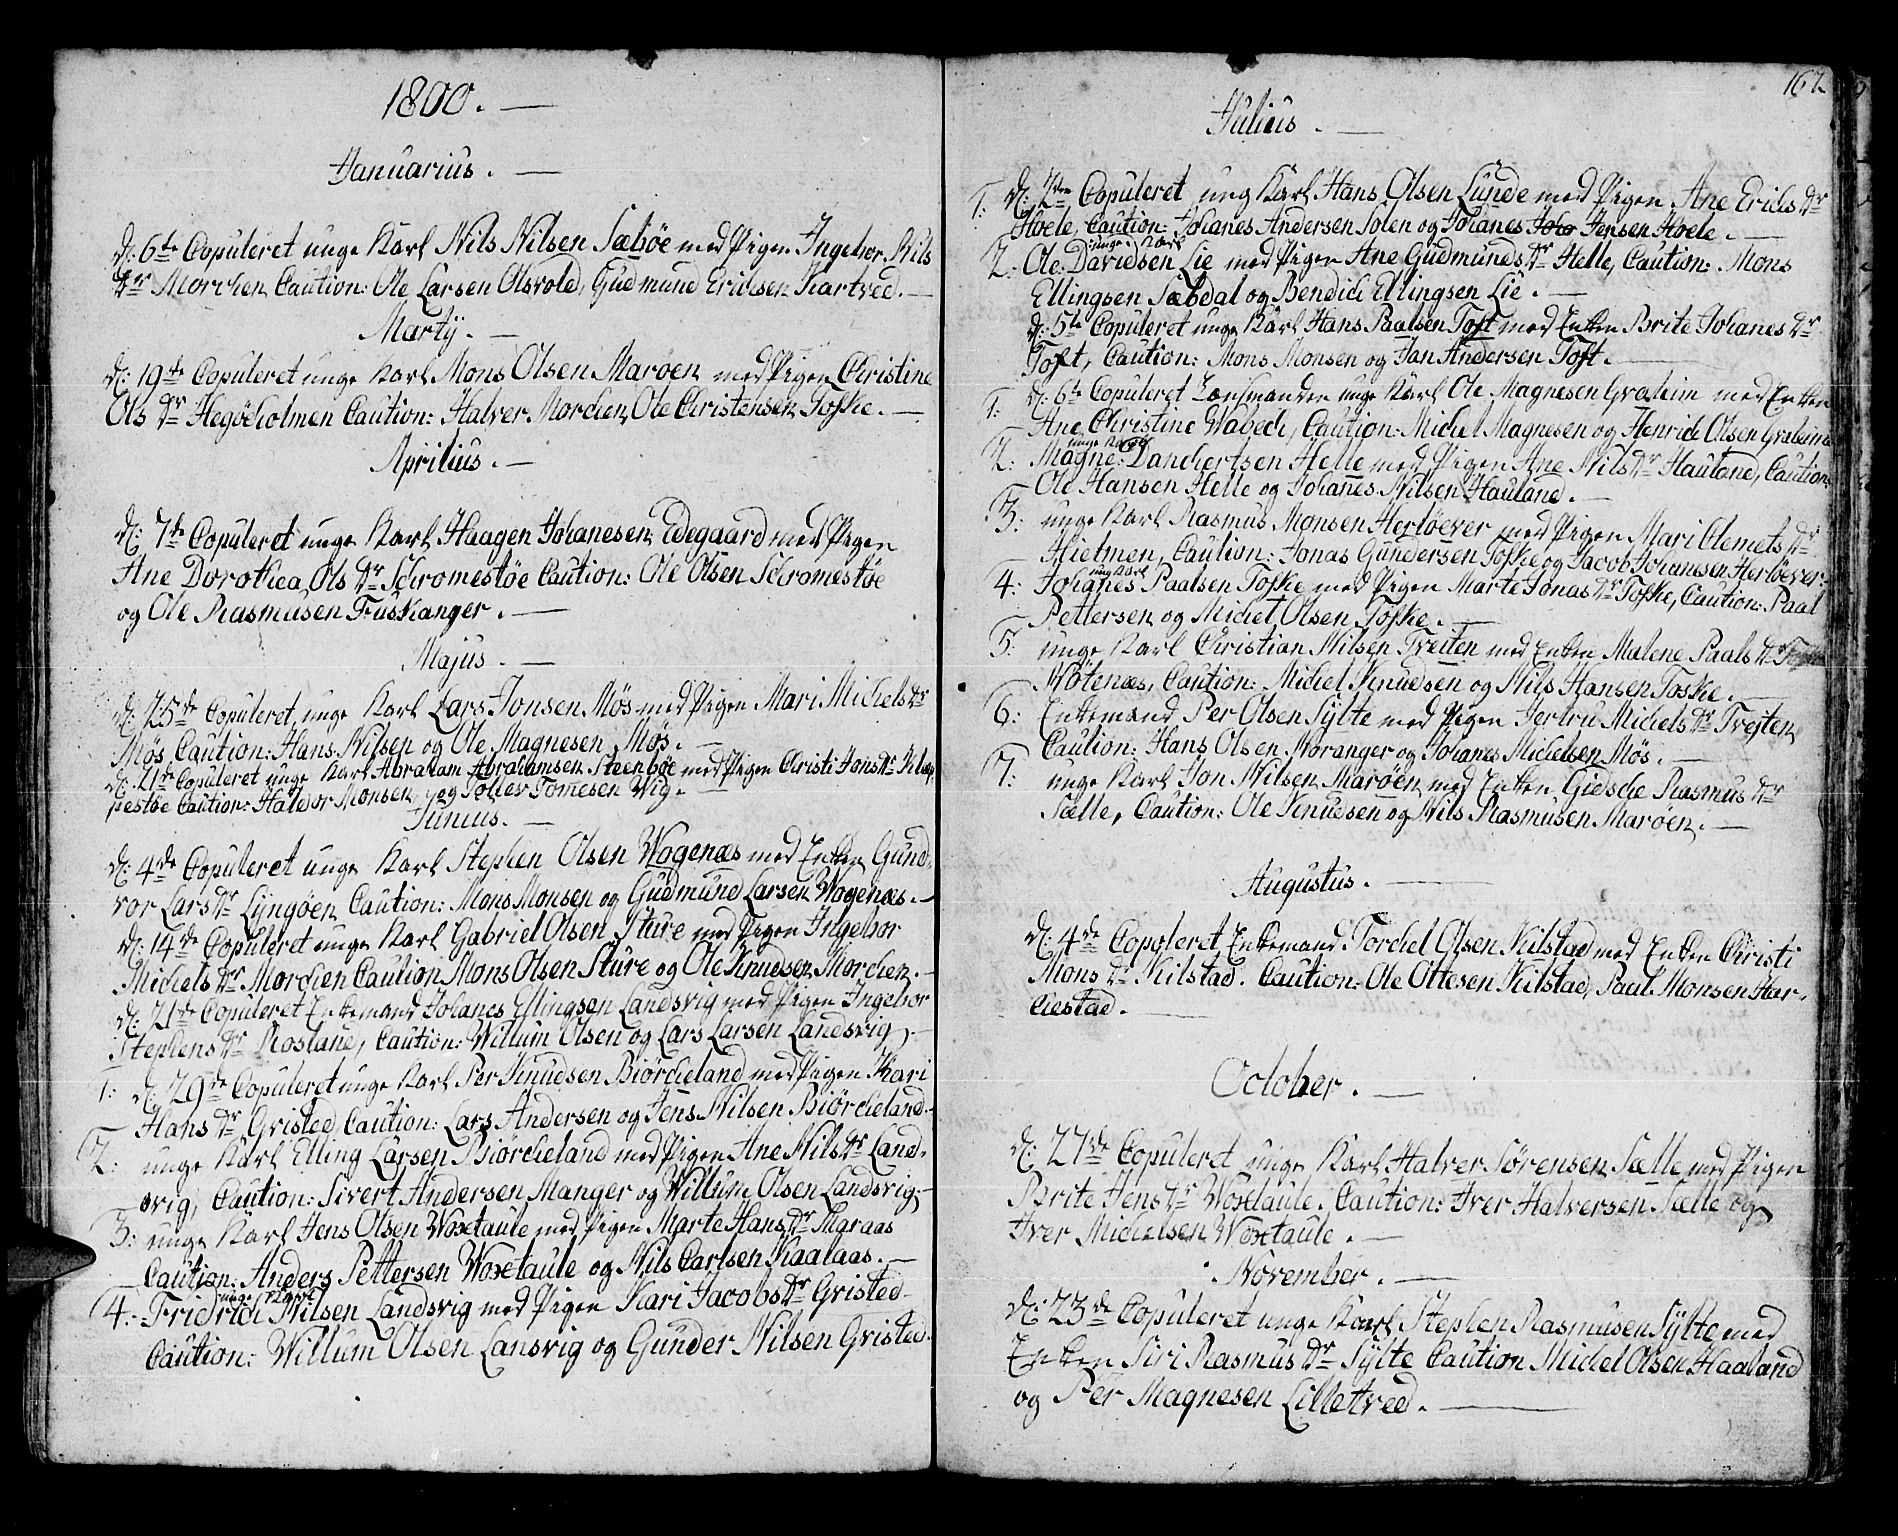 1800. —
Januarius. —
d: 6te Copuleret unge Karl Nils Nilsen Sæbøe med Pigen Ingebor Nils
dr Morchen Caution: Ole Larsen Olsvold, Gudmund Ericksen Kartved. —
Martÿ. —
d: 19de Copuleret unge Karl Mons Olsen Marøen med Pigen Christine
Ols dr Hegøeholmen Caution: Halver Morchen, Ole Christensen Toske. —
Aprilius. —
d: 7de Copuleret unge Karl Haagen Johanesen Edegaard med Pigen
Ane Dorothea Ols dr Schromestøe Caution: Ole Olsen Schromestøe
og Ole Rasmusen Fuskanger. —
Majus. —
d: 25de Copuleret unge Karl Lars Jonsen Møs med Pigen Mari Michels dr
Møs Caution: Hans Nilsen og Ole Magnesen Møs. —
d: 21de Copuleret unge Karl Abraham Abrahamsen Steenbøe med Pigen Christi Jons dr Klep
pestøe Caution: Haldor Monsen og Tollev Tomesen Vig. —
Junius. —
d: 4de Copuleret unge Karl Stephen Olsen Wogenæs med Enken Gund-
vor Lars dr Lyngøen Caution: Mons Monsen og Gudmund Larsen Wogenæs. —
d: 14de Copuleret unge Karl Gabriel Olsen Sture med Pigen Ingebor
Michels dr Morchen Caution Mons Olsen Sture og Ole Knudsen Morchen. —
d: 21de Copuleret Enkemand Johanes Ellingsen Landsvig med Pigen Ingebor
Stephens dr Rosland, Caution: Willum Olsen og Lars Larsen Landsvig. —
1: d: 29de Copuleret unge Karl Per Knudsen Biørcheland med Pigen Kari
Hans dr Gristed Caution: Lars Andersen og Jens Nilsen Biørcheland. —
2: unge Karl Elling Larsen Biørcheland med Pigen Ane Nils dr Land-
svig, Caution: Sivert Andersen Manger og Willum Olsen Landsvig. —
3: unge Karl Jens Olsen Woxtaule med Pigen Marte Hans dr
Caution: Anders Pettersen Woxtaule og Nils Carlsen Kaalaas. —
unge Karl
4: Fridrich Nilsen Landsvig med Pigen Kari Jacobs dr Gristed
Caution: Willum Olsen Lansvig og Gunder Nilsen Gristed.
162
Julius. —
1: d: 2den Copuleret ung Karl Hans Olsen Lunde med Pigen Ane Erichs dr
Hoele, Caution: Johanes Andersen Solen og Johanes Joho Jensen Hoele. —
unge Karl
2: Ole Davidsen Lie med Pigen Ane Gudmunds dr Helle, Caution: Mons
Ellingsen Sæbdal og Bendich Ellingsen Lie. —
d: 5te Copuleret unge Karl Hans Paalsen Toft med Enken Brite Johanes dr
Toft, Caution: Mons Monsen og Jan Andersen Toft. —
1: d: 6te Copuleret Lænsmanden unge Karl Ole Magnesen Graleim med Enken
Ane Christine Wabech, Caution: Michel Magnesen og Henrich Olsen Graleim
unge Karl
2: Magne Danchertsen Helle med Pigen Ane Nils dr Hauland, Caution:
Ole Hansen Helle og Johanes Nilsen Hauland. —
3: unge Karl Rasmus Monsen Herløever med Pigen Mari Clemets dr
Hielmen, Caution: Jonas Gundersen Toske og Jacob Johanesen Herløever.
ung Karl
4: Johanes Paalsen Toske med Pigen Marte Jonas dr Toske, Caution: Paal
Pettersen og Michel Olsen Toske. —
5: unge Karl Christian Nilsen Treiten med Enken Malene Paals dr
Nøtenæs, Caution: Michel Knudsen og Nils Hansen Toske. —
6: Enkemand Per Olsen Sylte med Pigen Jertru Michels dr Trejten
Caution: Hans Olsen Noranger og Johanes Michelsen Møs. —
7: unge Karl Jon Nilsen Marøen med Enken Giesche Rasmus dr
Sælle, Caution: Ole Knudsen og Nils Rasmusen Marøen. —
Augustus. —
d: 4de Copuleret Enkemand Torchel Olsen Kilstad med Enken Christi
Mons dr Kilstad. Caution: Ole Ottesen Kilstad, Paul Monsen Har-
chestad. —
October. —
d: 27de Copuleret unge Karl Halver Sørensen Sælle med Pigen
Brite Jens dr Woxtaule. Caution: Iver Halversen Sælle og
Iver Michelsen Woxtaule. —
November. —
d: 23de Copuleret unge Karl Stephen Rasmusen Sylte med
Enken Siri Rasmus dr Sylte Caution Michel Olsen Haaland
og Per Magnesen Lilletved. —